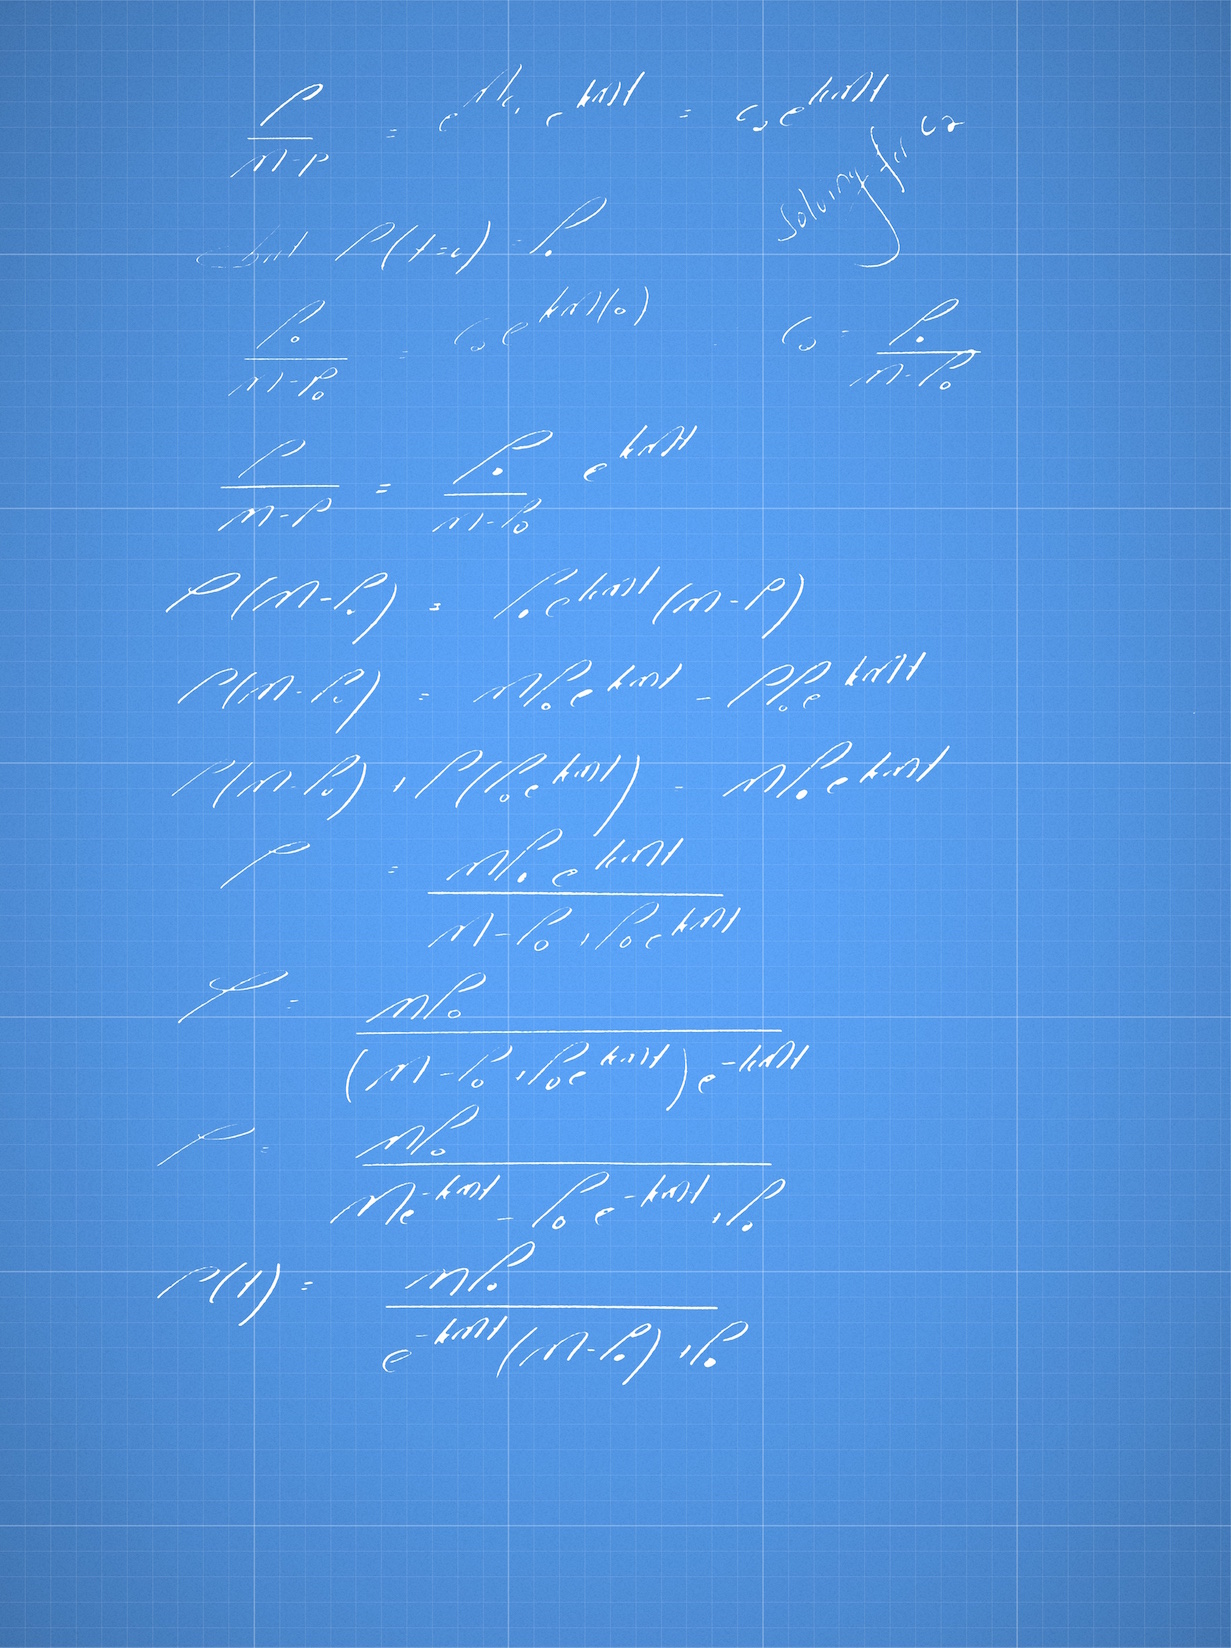 P/(M-P) = e^{MC₁} e^{kMt} = C₂e^{kMt}
Solving for C₂
but P(t=0) = P₀
P₀/(M-P₀) = C₂e^{kM(0)} C₂ = P₀/(M-P₀)
P/(M-P) = P₀/(M-P₀) e^{kMt}
P(M-P₀) = P₀e^{kMt}(M-P)
P(M-P₀) = MP₀e^{kMt} - PP₀e^{kMt}
P(M-P₀) + P(P₀e^{kMt}) = MP₀e^{kMt}
P = MP₀e^{kMt}/(M-P₀+P₀e^{kMt})
P = MP₀/((M-P₀+P₀e^{kMt})e^{-kMt})
P = MP₀/(Me^{-kMt} - P₀e^{-kMt} + P₀)
P(t) = MP₀/(e^{-kMt}(M-P₀)+P₀)